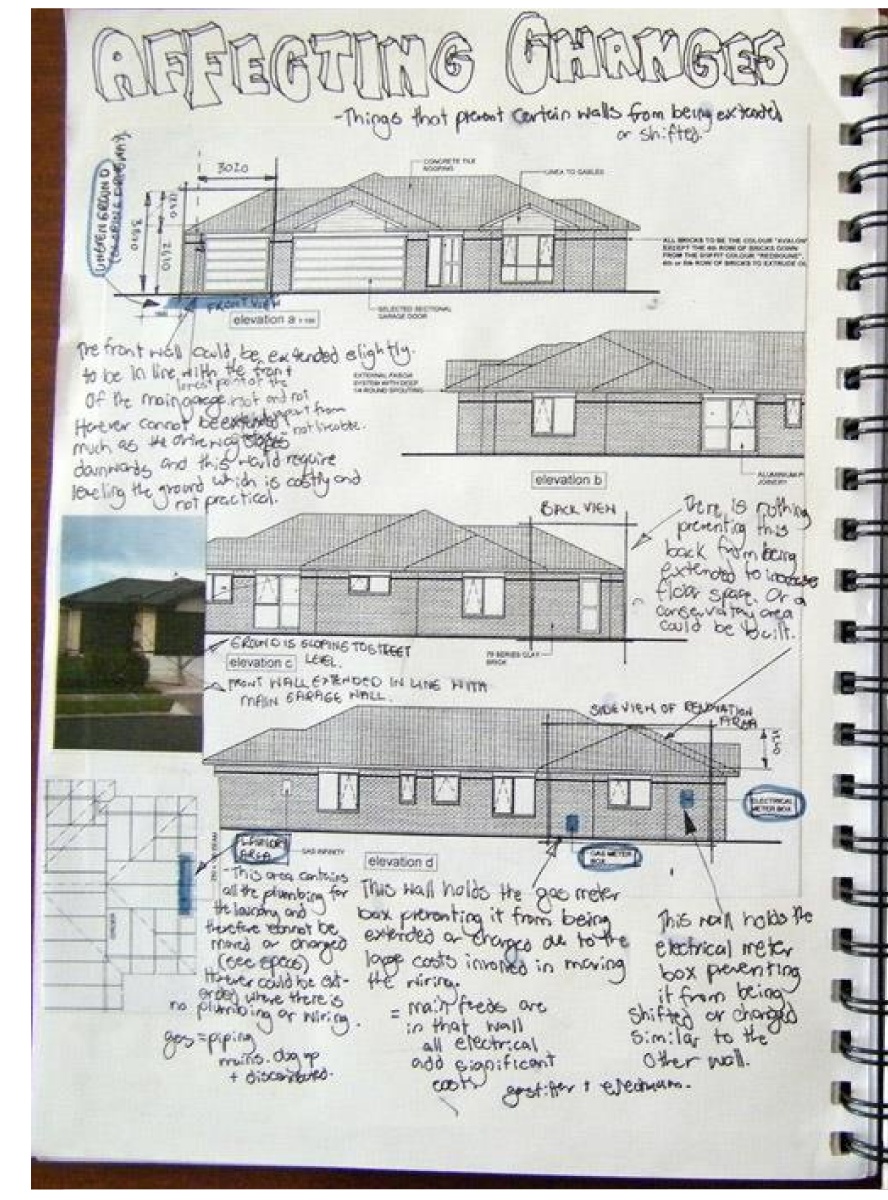 AFFECTING CHANGES
-Things that prevent certain walls from being extended
or shifted.
UNEVEN GROUND
3020
CONCRETE TILE
ROOFING
LINEX TO GABLES
ALL BRICKS TO BE THE COLOUR "AVALON"
EXCEPT THE 4th ROW OF BRICKS DOWN
FROM THE SOFFIT COLOUR "REDBOURNE",
FRONT VIEW
elevation a
SELECTED SECTIONAL
GARAGE DOOR
The front wall could be extended slightly.
to be in line with the front
lowest point of the
Of the main garage. roof and not
However cannot be extended
apart from
much as the driveway slopes - not liveable.
downwards and this would require
leveling the ground which is costly and
not practical.
EXTERNAL FASCIA
SYSTEM WITH DEEP
1/4 ROUND SPOUTING
elevation b
ALUMINIUM
JOINERY
BACK VIEW
There is nothing
preventing this
back from being
extended to increase
floor space. Or a
conservatory area
could be built.
GROUND IS SLOPING TO STREET
LEVEL.
elevation c
70 SERIES CLAY
BRICK
FRONT WALL EXTENDED IN LINE WITH
MAIN GARAGE WALL.
SIDE VIEW OF RENOVATION
AREA
ELECTRICAL
METER BOX
GAS METER
BOX
AREA
GAS INFINITY
elevation d
- This area contains
all the plumbing for
the laundry and
therefore cannot be
moved or changed
(see specs)
However could be ext-
ended where there is
no plumbing or wiring.
gas = piping
mains. dug up
+ discontinued.
This wall holds the gas meter
box preventing it from being
extended or changed due to the
large costs involved in moving
the wiring.
= main feeds are
in that wall
all electrical
add significant
costs
gasfitter + electrician.
This wall holds the
electrical meter
box preventing
it from being
shifted or changed
similar to the
other wall.